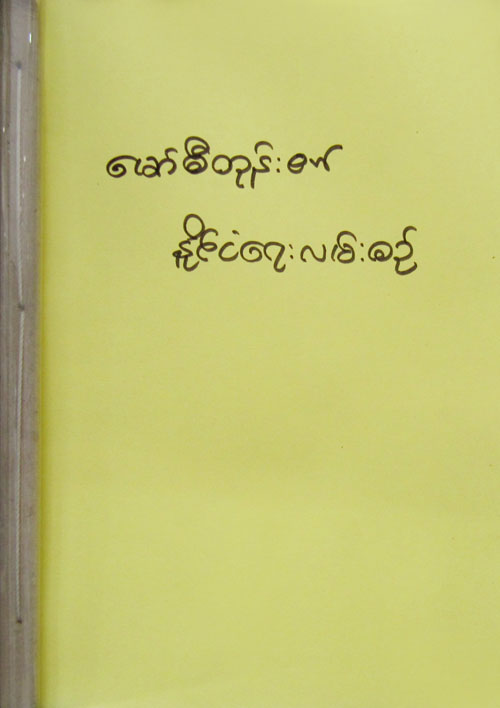 မော်စီတုန်း၏
နိုင်ငံရေးလမ်းစဉ်